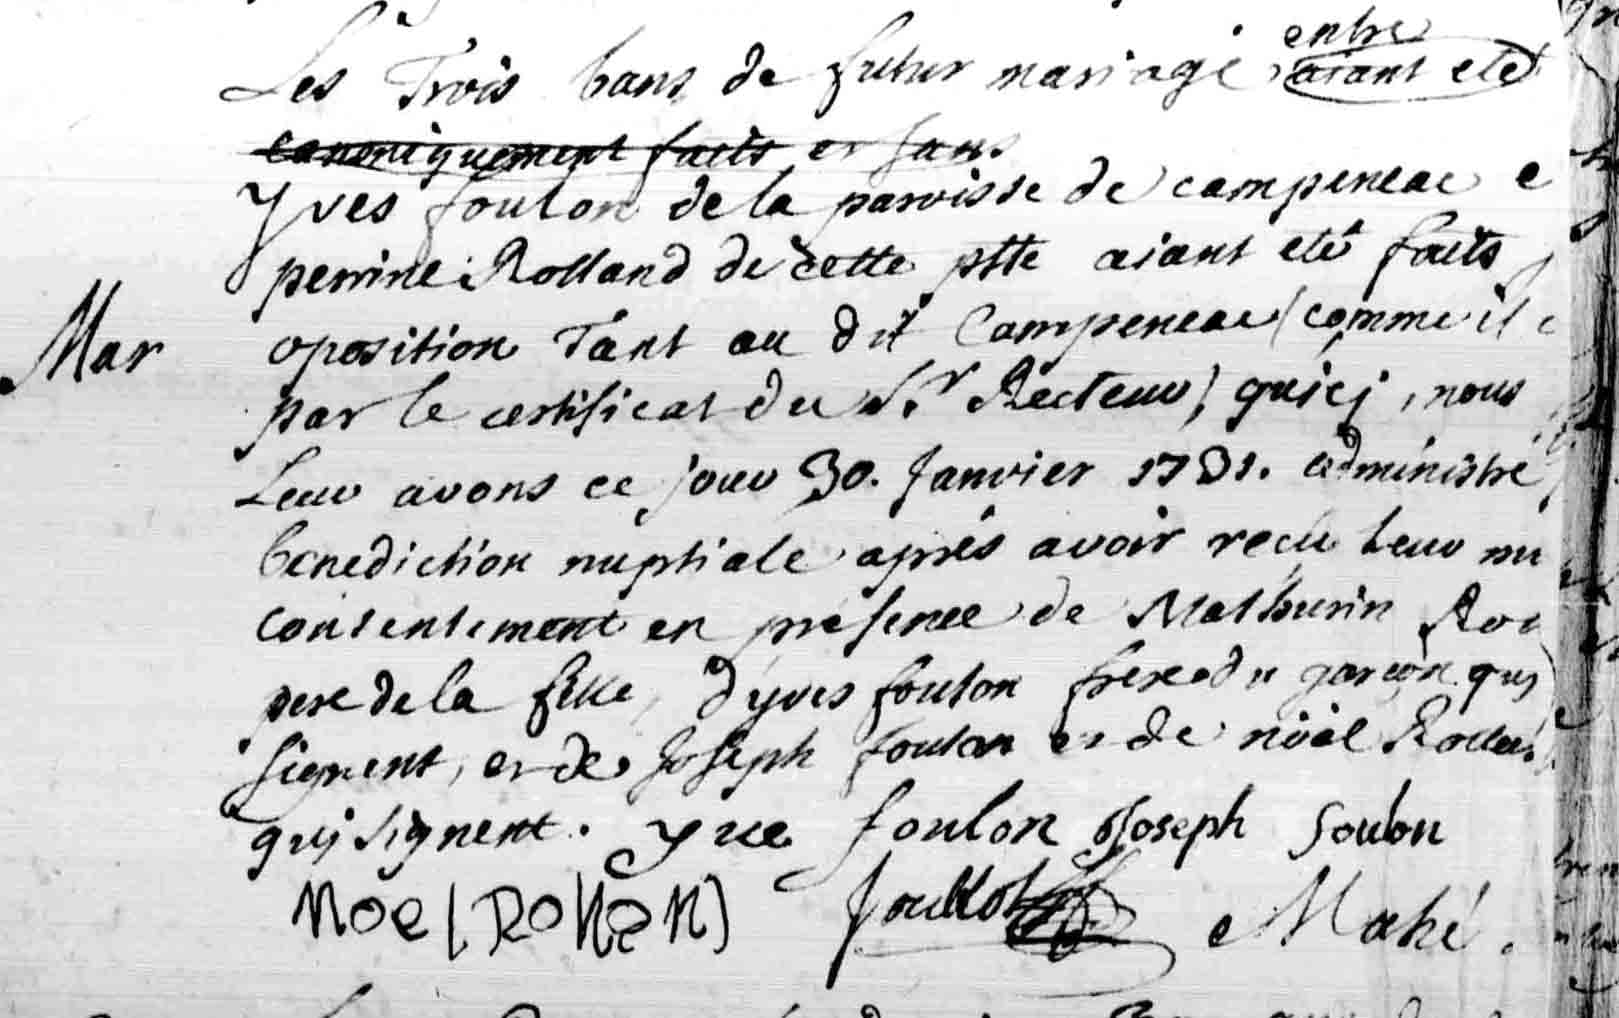 entre
Les Trois bans de futur mariage aiant eté
canoniquement faits et sans
Yves foulon de la paroisse de campeneac e
perrine Rolland de cette ptte aiant eté faits
Mar
oposition Tant au dit Campeneac (comme il c
par le certificat du Sr Recteur) qu'icj, nous
Leur avons ce jour 30. Janvier 1731. administré
benediction nuptiale aprés avoir recu leur mu
consentement en presence de Mathurin Rol
pere de la fille, d'yves foulon frere du garçon quj
signent, et de Joseph foulon et de nöel Rolland
quj signent. yve foulon Joseph foulon
Noel Rollan Mahé.